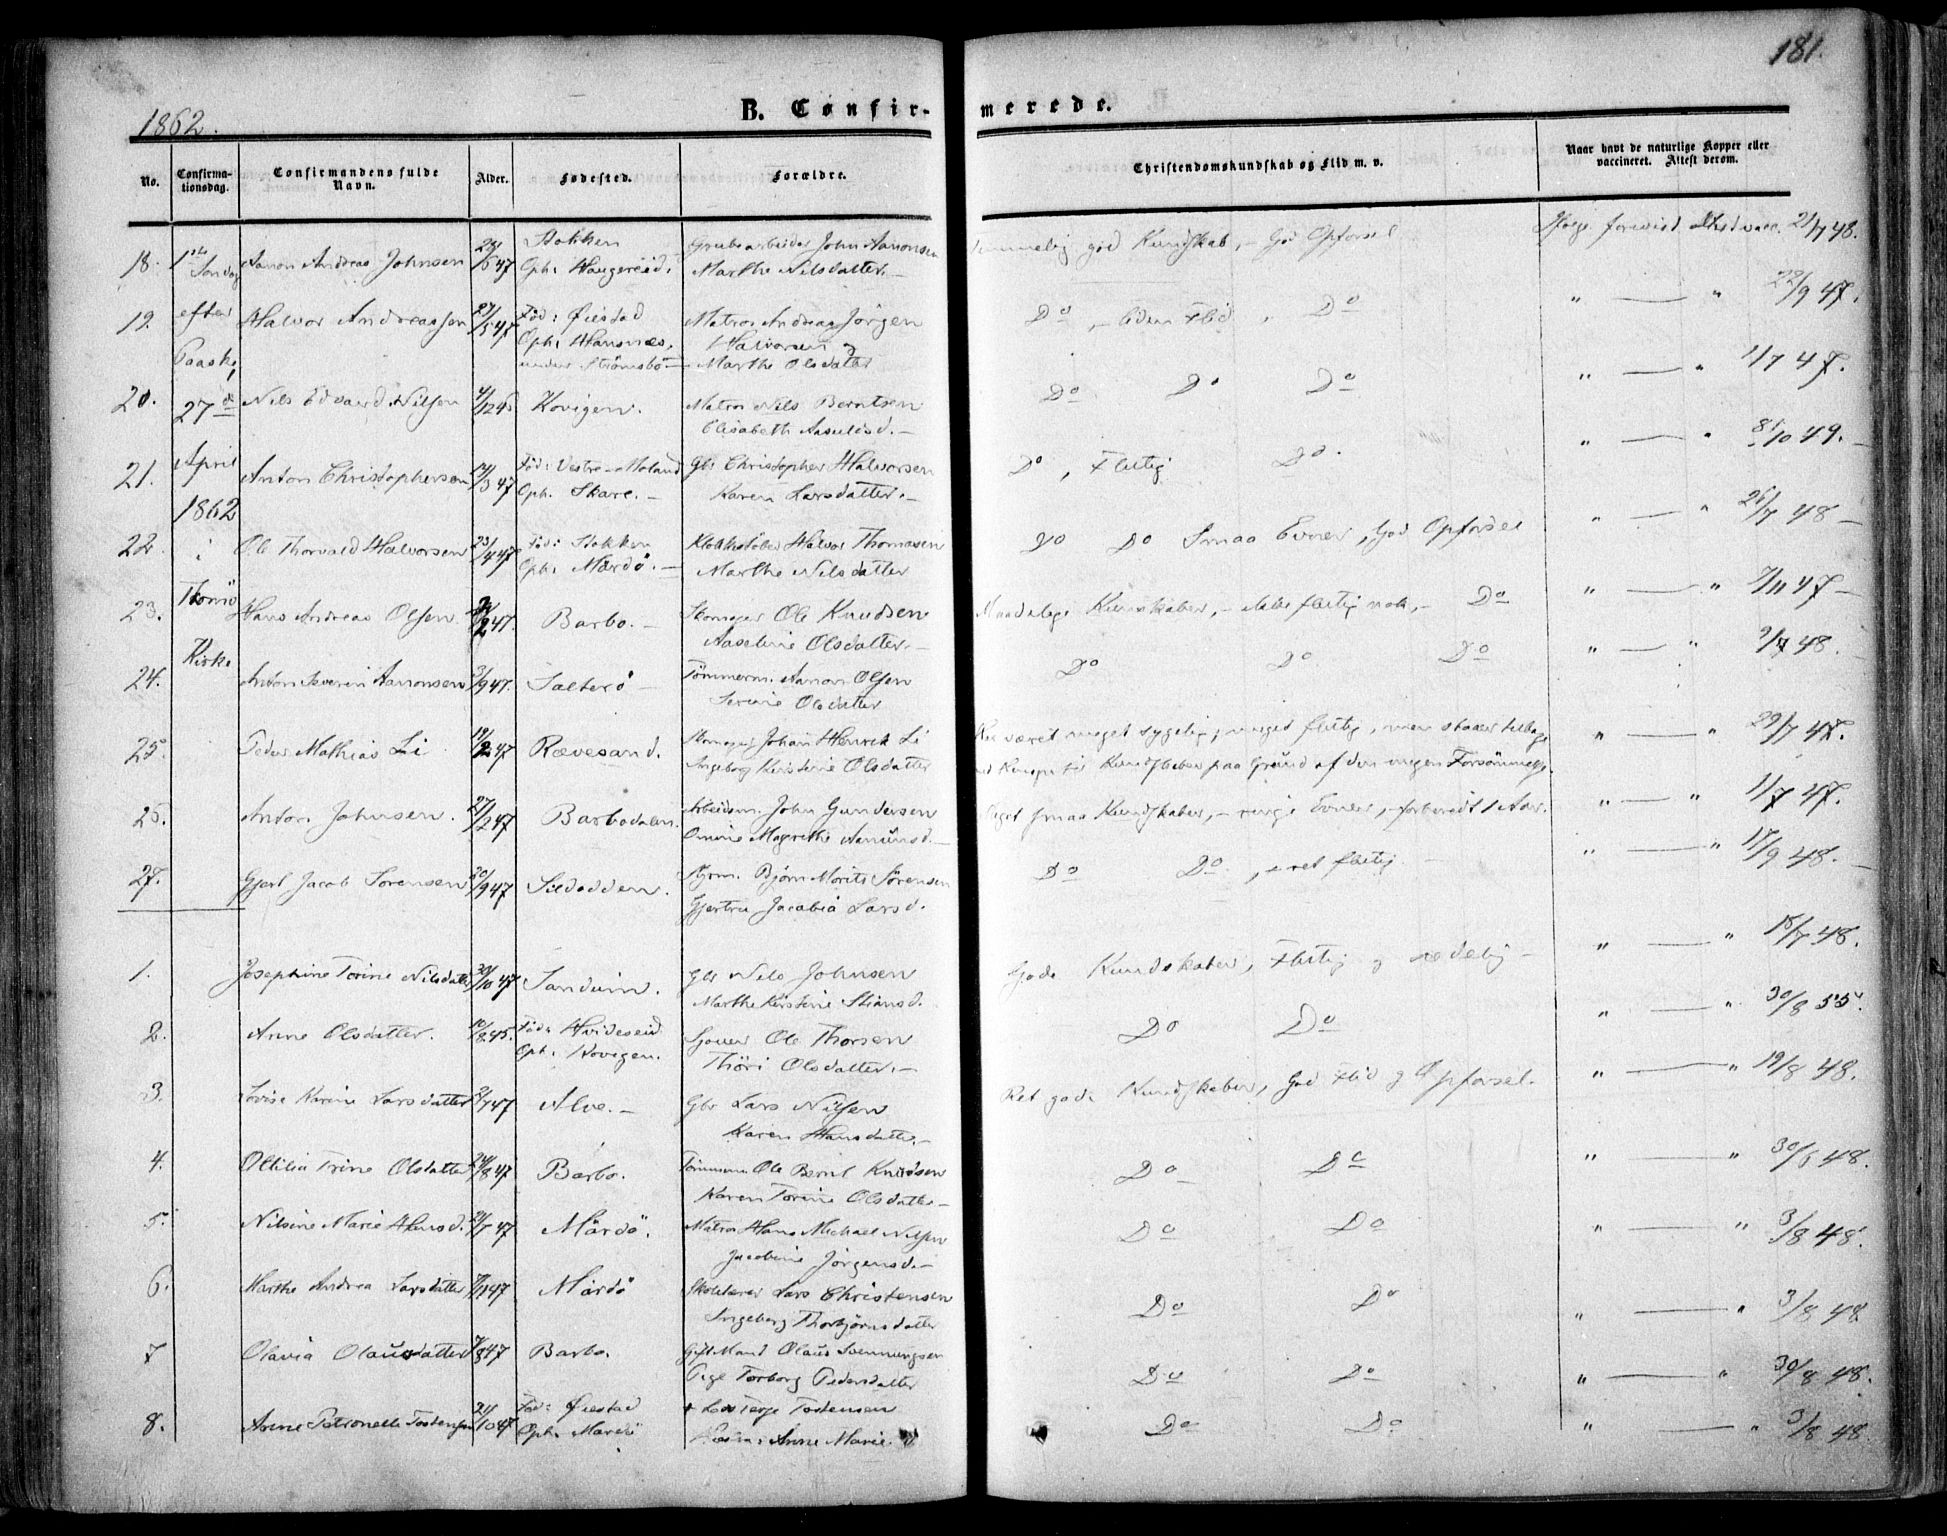 181.
1862.
B. Confir-
merede.
No.
Confirma-
tionsdag.
Confirmandens fulde
Navn.
Alder.
Fødested.
Forældre.
Christendomskundskab og Flid m. v.
Naar havt de naturlige Kopper eller
vaccineret. Attest derom.
1ste Søndag
efter
Paaske,
27de
April
1862
i
Thrømø
Kirke
18. Aanon Andreas Johnsen 23/5 47 Stokken Grubearbeider John Aanonsen god Kundskab, - God Opførsel 21/7 48.
Oph: Haugereid. Marthe Nilsdatter. -
19. Halvor Andreassen 27/5 47 Fød: Øiestad Matros Andreas Jørgen Do, - liden Flid, Do " — " 22/9 47.
Oph: Hansnæs, Halvorsen og
under Strømsbo - Marthe Olsdatter
20. Nils Edvard Nilsen Kovigen. Matros Nils Berntsen Do Do Do " — " 1/7 47.
Elisabeth Aasulvsd. -
21. Anton Christophersen 14/3 47 Fød: Vestre-Moland Gbr Christopher Halvorsen Do, Flittig Do. " — " 8/10 49.
Oph. Skare. - Karen Larsdatter. -
22. Ole Thorvald Halvorsen 23/4 47 Fød: Stokken Halvor Thomasen Do Do Smaa Evner, God Opførsel " — " 26/7 48
Oph: Mærdø. - Marthe Nilsdatter
23. Hans Andreas Olsen Barbo. - Skomager Ole Knudsen Kundskaber, - ikke flittig nok, - Do " — " 7/11 47
Aaseline Olsdatter. -
24. Anton Severin Aanonsen 3/9 47. Sælterø - Tømmerm. Aanon Olsen Do Do Do " — " 9/7 48.
Serine Olsdatter
25. Peder Mathias Li 19/2 47 Rævesand. Johan Henrik Li været meget sygelig; meget flittig, men staaer tilbage " — " 29/7 47.
Ingeborg Kirstine Olsdatter Kundskaber paa Grund af den megen Forsømmelse.
26. Anton Johnsen. 27/2 47 Barbodalen. Arbeidsm. John Gundersen smaa Kundskaber, - ringe Evner, - forberedt 1 Aar. " — " 11/7 47.
Magrethe Aanunsd. -
27. Gjert Jacob Sørensen 20/9 47 Sildodden. Styrm. Bjørn Morits Sørensen Do Do, - ret flittig. " — " 17/9 48.
Gjertru Jacobia Larsd.
1. Josephine Torine Nilsdatter 30/10 47 Sandum. Gbr Nils Johnsen Gode Kundskaber, Flittig og sædelig - " — " 18/7 48.
Marthe Kirstine Stiansd.
2. Anne Olsdatter. 10/8 45. Fød: Hvideseid Ole Thorsen Do Do " — " 30/8 55.
Oph: Kovigen. Thori Olsdatter. -
3. Lovise Karine Larsdatter 2/7 47 Alve. - Gbr Lars Nilsen Ret gode Kundskaber, God Flid og Opførsel. " — " 19/8 48.
Karen Hansdatter. -
4. Ottilia Trine Olsdatter 24/8 47 Barbo. Tømmerm Ole Bernt Knudsen Do Do " — " 30/6 48.
Karen Torine Olsdatter -
5. Nilsine Marie Hansd. 21/7 47 Mærdø. Matros Hans Michael Nilsen Do Do " — " 3/8 48.
Jacobine Jørgensd. -
6. Marthe Andrea Larsdatter Mærdø Skolelærer Lars Christensen Do Do " — " 3/8 48
Ingeborg Thorbjørnsdatter
7 Olavia Olausdatter Barbo. Gift Mand Olaus Svennungsen Do Do " — " 30/8 48.
Pige Torborg Pedersdatter
8. Anne Petronelle Tostensen 21/10 47 Fød: Øiestad Terje Tostensen Do Do " — " 3/8 48.
Oph. Mærdø Anne Marie